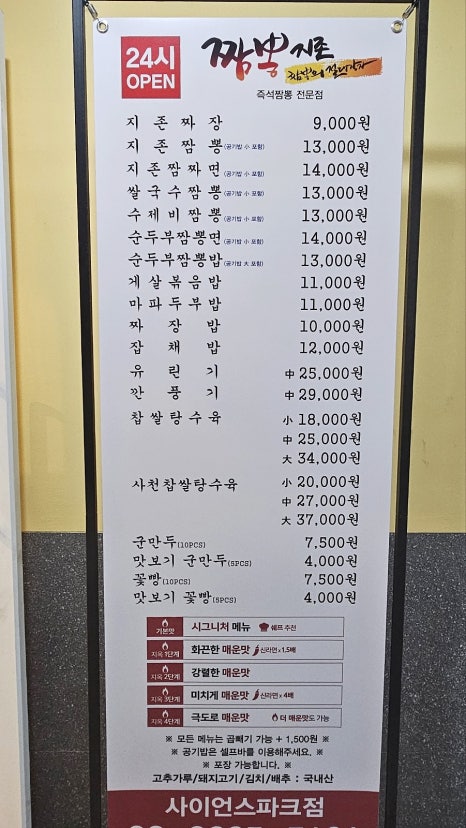 24시
OPEN
짬뽕지존
짬뽕의 절대강자
즉석짬뽕 전문점
지존짜장 9,000원
지존짬뽕(공기밥 小 포함) 13,000원
지존짬짜면(공기밥 小 포함) 14,000원
쌀국수짬뽕(공기밥 小 포함) 13,000원
수제비짬뽕(공기밥 小 포함) 13,000원
순두부짬뽕면(공기밥 小 포함) 14,000원
순두부짬뽕밥(공기밥 大 포함) 13,000원
게살볶음밥 11,000원
마파두부밥 11,000원
짜장밥 10,000원
잡채밥 12,000원
유린기 中 25,000원
깐풍기 中 29,000원
찹쌀탕수육 小 18,000원
中 25,000원
大 34,000원
사천찹쌀탕수육 小 20,000원
中 27,000원
大 37,000원
군만두(10PCS) 7,500원
맛보기 군만두(5PCS) 4,000원
꽃빵(10PCS) 7,500원
맛보기 꽃빵(5PCS) 4,000원
기본맛 시그니처 메뉴 쉐프 추천
지옥 1단계 화끈한 매운맛 신라면 x 1.5배
지옥 2단계 강렬한 매운맛
지옥 3단계 미치게 매운맛 신라면 x 4배
지옥 4단계 극도로 매운맛 더 매운맛도 가능
※ 모든 메뉴는 곱빼기 가능 + 1,500원 ※
※ 공기밥은 셀프바를 이용해주세요. ※
※ 포장 가능합니다. ※
고추가루/돼지고기/김치/배추 : 국내산
사이언스파크점